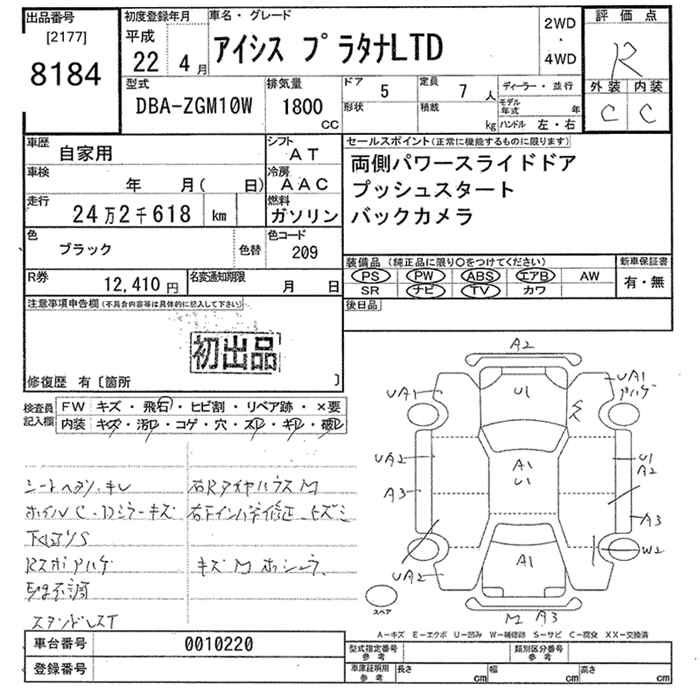 出品番号
[2177]
8184
初度登録年月
平成
22年 4月
車名・グレード
アイシス プラタナLTD
2WD
・
4WD
評価点
R
外装 内装
C C
型式
DBA-ZGM10W
排気量
1800
CC
ドア 5
形状
定員 7 人
積載 kg
ディーラー・並行
モデル年式 年
ハンドル 左・右
車歴
自家用
シフト
AT
車検
年 月( 日)
冷房
AAC
走行
24万2千618 km
燃料
ガソリン
色
ブラック
色替
色コード
209
R券
12,410円
名変通知期限
月 日
セールスポイント(正常に機能するものに限ります)
両側パワースライドドア
プッシュスタート
バックカメラ
装備品(純正品に限り〇をつけてください)
PS PW ABS エアB AW
SR ナビ TV カワ
新車保証書
有・無
後日品
注意事項申告欄(不具合内容等は具体的に記入して下さい)
初出品
修復歴 有〔箇所 〕
検査員記入欄
FW キズ・飛石・ヒビ割・リペア跡・×要
内装 キズ・汚レ・コゲ・穴・スレ・キレ・破レ
シートヘタリ、キレ
右Rタイヤハウス M
キズ M
A2
UA1
U1
UA1
ハゲ
UA2
A1
U1
U1
A2
A3
A3
W2
UA2
A1
スペア
M A3
A-キズ E-エクボ U-凹み W-補修跡 S-サビ C-腐食 XX-交換済
車台番号
0010220
登録番号
型式指定番号
参考
類別区分番号
参考
車庫証明用
参考
長さ cm
幅 cm
高さ cm